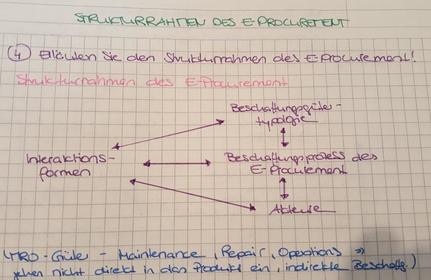 STRUKTURRAHMEN DES E-PROCUREMENT
④ Erläutern Sie den Strukturrahmen des E-Procurement!
Strukturrahmen des E-Procurement
Beschaffungsgüter-
typologie
Interaktions-
formen
Beschaffungsprozess des
E-Procurement
Akteure
MRO-Güter - Maintenance, Repair, Operations ⇒
gehen nicht direkt in das Produkt ein, indirekte Beschaff.)